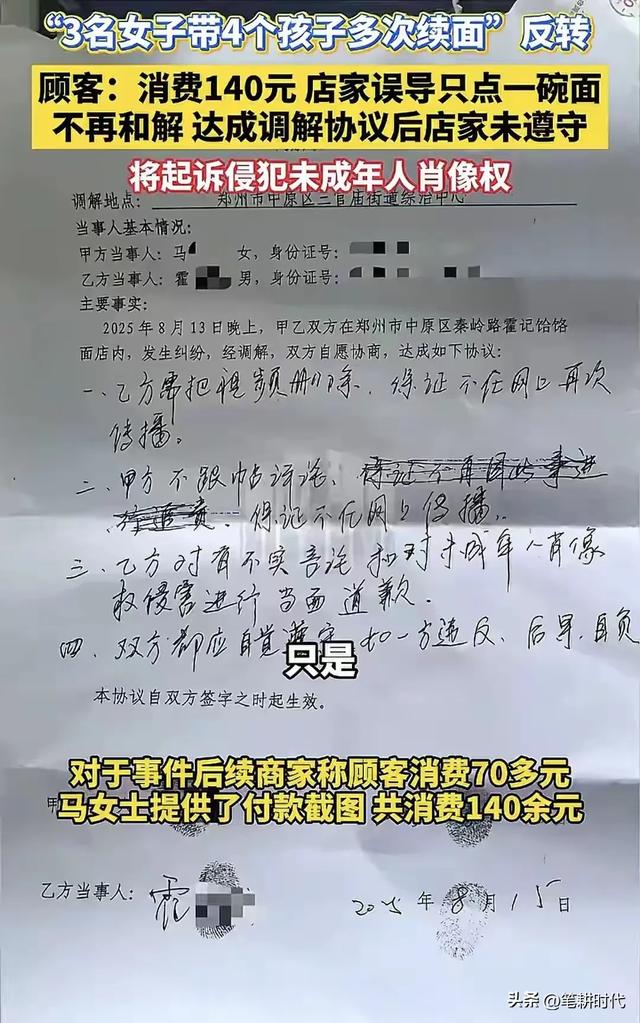 “3名女子带4个孩子多次续面”反转
顾客：消费140元 店家误导只点一碗面
不再和解 达成调解协议后店家未遵守
将起诉侵犯未成年人肖像权
调解地点： 郑州市中原区三官庙街道综治中心
当事人基本情况：
甲方当事人：马 女，身份证号：
乙方当事人：霍 男，身份证号：
主要事实：
2025年8月13日晚上，甲乙双方在郑州市中原区秦岭路霍记饸饹
面店内，发生纠纷，经调解，双方自愿协商，达成如下协议：
一、乙方需把视频删除．保证不在网上再次
传播。
二、甲方不跟帖评论、
保证不在网上传播。
三、乙方对有不实言论和对未成年人肖像
权侵害进行当面道歉．
四、双方都应自觉遵守 如一方违反、后果自负
只是
本协议自双方签字之时起生效。
对于事件后续商家称顾客消费70多元
马女士提供了付款截图 共消费140余元
乙方当事人：霍 2025年8月15日
头条 @笔耕时代